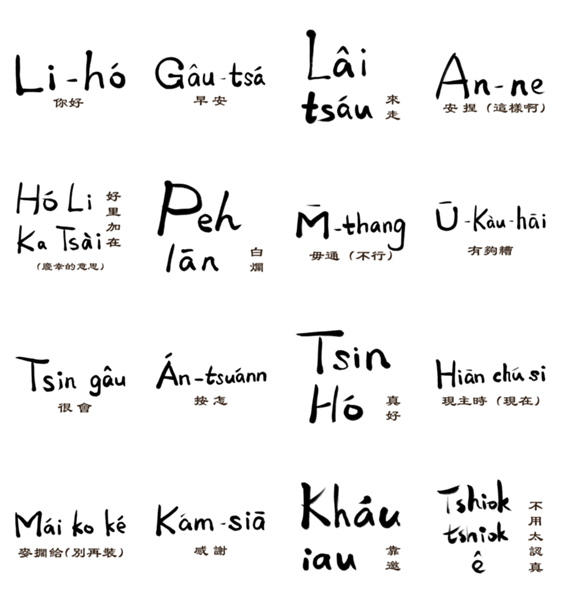 Li-hó
你好
Gâu-tsá
早安
Lâi
tsáu
來走
An-ne
安捏（這樣啊）
Hó Li
Ka Tsài
好里加在
（慶幸的意思）
Peh
lān
白爛
M̄-thang
毋通（不行）
Ū-Kàu-hāi
有夠糟
Tsin gâu
很會
Án-tsuánn
按怎
Tsin
Hó
真好
Hiān chú si
現主時（現在）
Mái ko ké
麥擱給（別再裝）
Kám-siā
感謝
Kháu
iau
靠邀
Tshiok
tshiok
ê
不用太認真